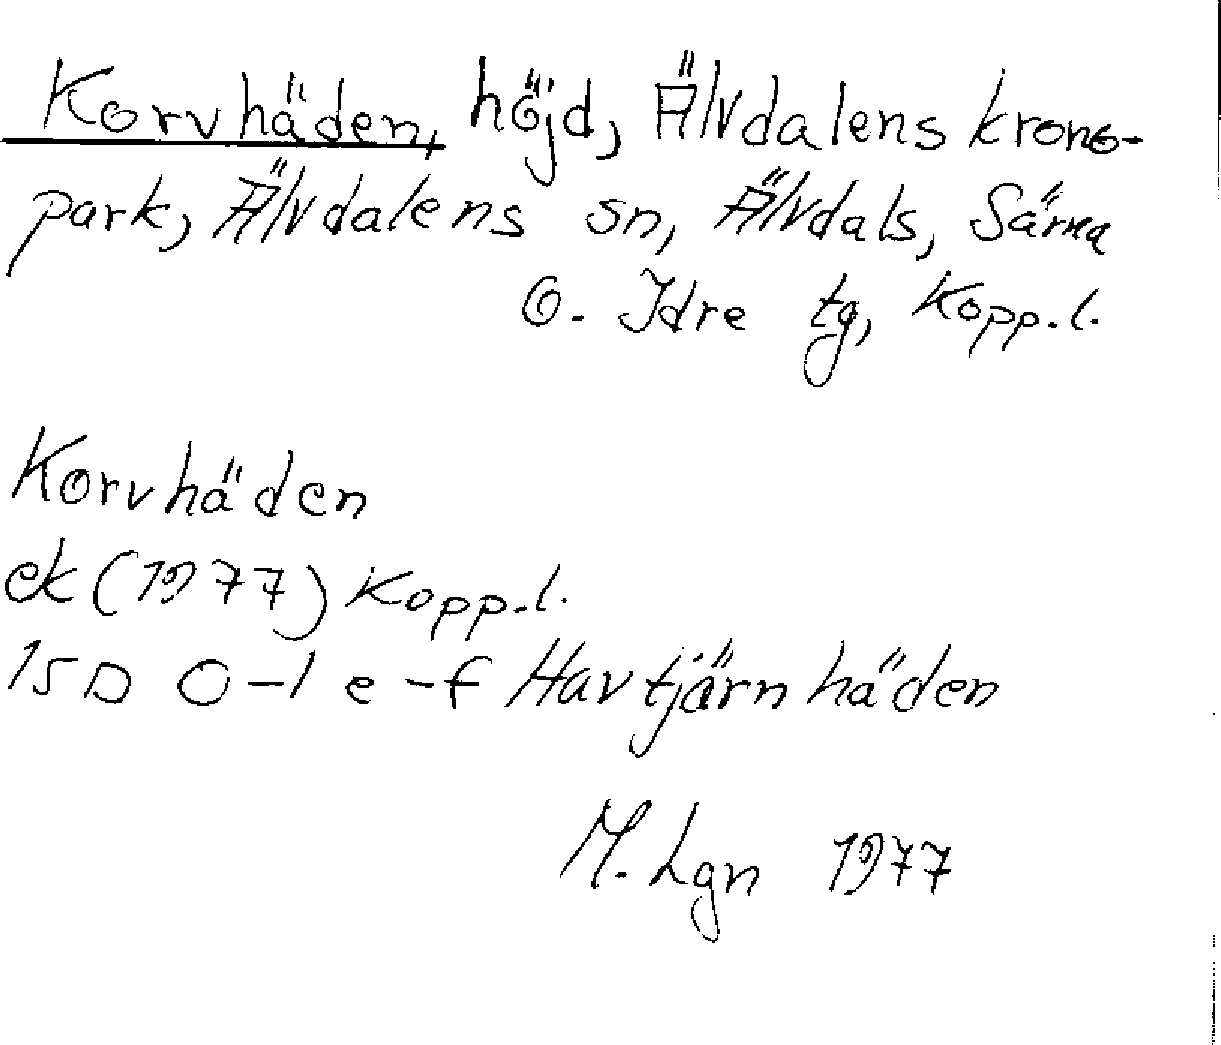 Korvhäden, höjd, Älvdalens krono-
park, Älvdalens sn, Älvdals, Särna
o. Idre tg, Kopp.l.
Korvhäden
ek (1977) Kopp.l.
15D 0-1 e-f Havtjärnhäden
M. Lgn 1977